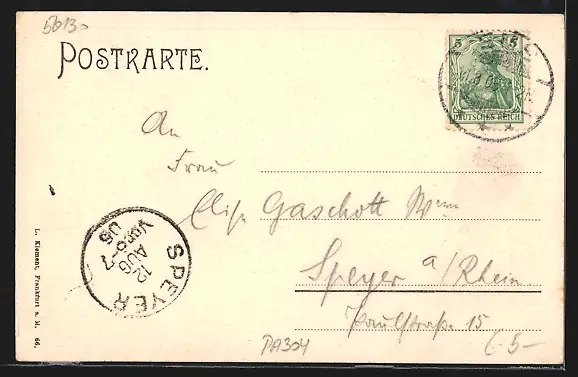 5613
POSTKARTE.
5 5
DEUTSCHES REICH
An
Frau
Elise Gaschott Wwe
Speyer a/Rhein
Paulstraße 15
L. Klement, Frankfurt a. M. 66.
SPEYER
12
AUG
Vor 6-7
05
PA304
5-